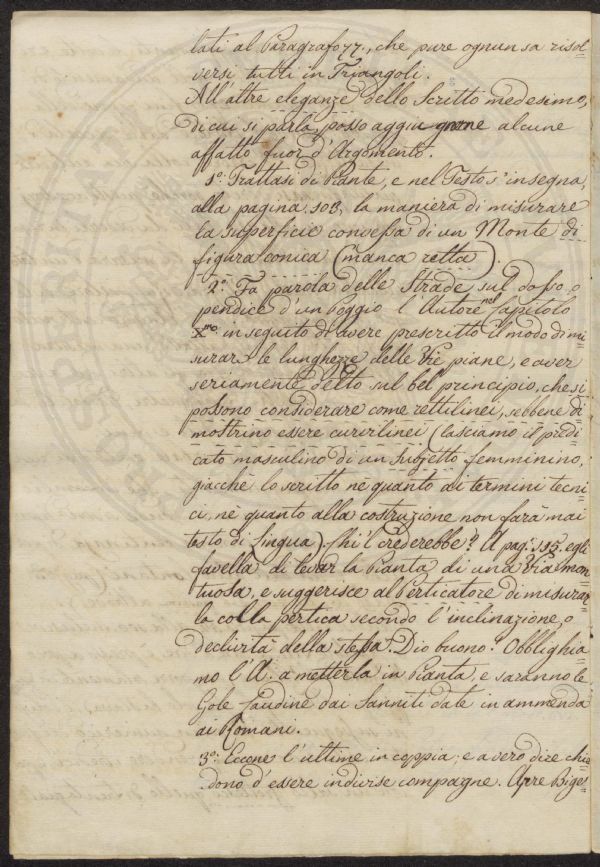 lati al Paragrafo 77., che pure ognun sa risol-
versi tutti in Triangoli.
All'altre eleganze dello Scritto medesimo,
di cui si parla, posso aggiugnerne alcune
affatto fuor d'Argomento.
1.º Trattasi di Piante, e nel Testo s'insegna,
alla pagina 103, la maniera di misurare
la superficie convessa di un Monte di
figura conica (manca retta).
2.º Fa parola delle Strade sul dosso, o
pendice d'un Poggio l'Autore nel Capitolo
X.mo in seguito di avere prescritto il modo di mi-
surare le lunghezze delle Vie piane, e aver
seriamente detto sul bel principio, che si
possono considerare come rettilinei, sebbene di-
mostrino essere curvilinei (lasciamo il predi-
cato masculino di un subjetto femminino,
giacchè lo scritto nè quanto ai termini tecni-
ci, nè quanto alla costruzione non farà mai
testo di lingua). Chi 'l crederebbe? A pag. 115. egli
favella di levar la Pianta di una Via mon-
tuosa, e suggerisce al Perticatore di misurar-
la colla pertica secondo l'inclinazione, o
declività della stessa. Dio buono! Obblighia-
mo l'A. a metterla in Pianta, e saranno le
Gole Caudine dai Sanniti date in ammenda
ai Romani.
3.º Eccone l'ultime in coppia; e a vero dire chie-
dono d'essere indivise compagne. Apre Biges-